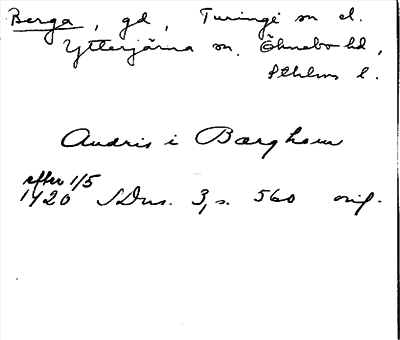 Berga, gd, Turinge sn el.
Ytterjärna sn, Öknebo hd,
Sthlms l.
Andris i Bærghom
efter 1/5
1420 SDns. 3, s. 560 orig.